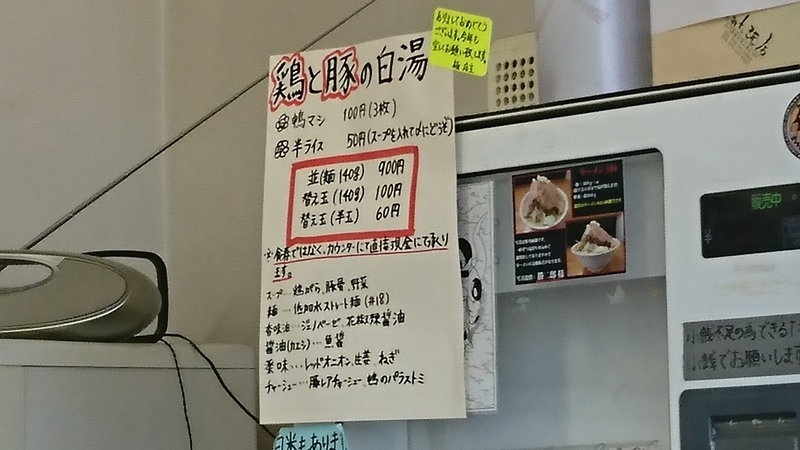 あけましておめでとう
ございます。今年も
宜しくお願い致します。
店主
鶏と豚の白湯
鴨マシ 100円(3枚)
半ライス 50円(スープを入れて〆にどうぞ)
並(麺140g) 900円
替え玉(140g) 100円
替え玉(半玉) 60円
※食券ではなく、カウンターにて直接現金にて承り
ます。
スープ…鶏がら、豚骨、野菜
麺…低加水ストレート麺(#18)
香味油…ジェノベーゼ、花椒辣醤油
醤油(カエシ)…魚醤
薬味…レッドオニオン、生姜、ねぎ
チャーシュー…豚レアチャーシュー、鴨のパストラミ
販売中
小銭不足の為できるだ
小銭でお願いしま
白米もありま